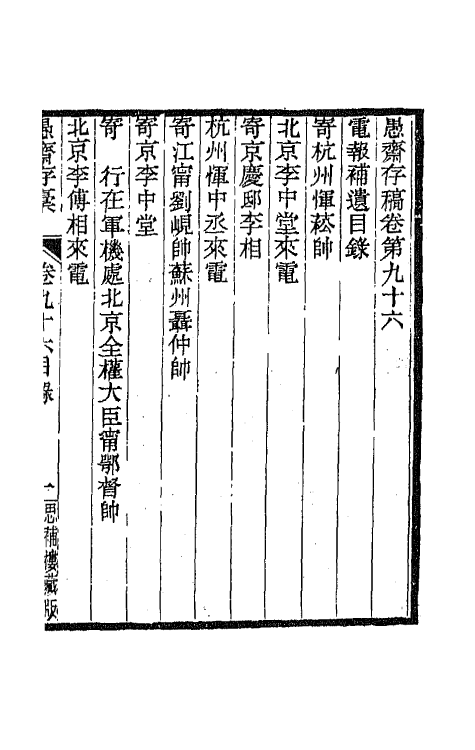 愚齋存稿卷第九十六
電報補遺目錄
寄杭州惲菘帥
北京李中堂來電
寄京慶邸李相
杭州惲中丞來電
寄江甯劉峴帥蘇州聶仲帥
寄京李中堂
寄　行在軍機處北京全權大臣甯鄂督帥
北京李傅相來電
愚齋存稾　卷九十六目錄　一　思補樓藏版